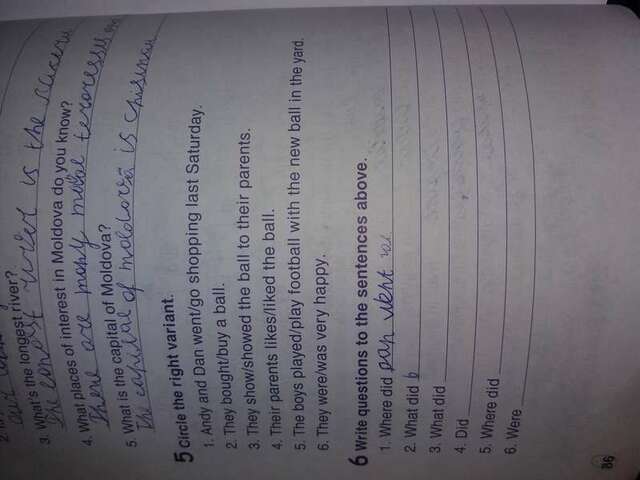 3. What's the longest river?
river is the
4. What places of interest in Moldova do you know?
There are many
5. What is the capital of Moldova?
The capital of moldova is chisinau
5 Circle the right variant.
1. Andy and Dan went/go shopping last Saturday.
2. They bought/buy a ball.
3. They show/showed the ball to their parents.
4. Their parents likes/liked the ball.
5. The boys played/play football with the new ball in the yard.
6. They were/was very happy.
6 Write questions to the sentences above.
1. Where did
2. What did b
3. What did
4. Did
5. Where did
6. Were
86